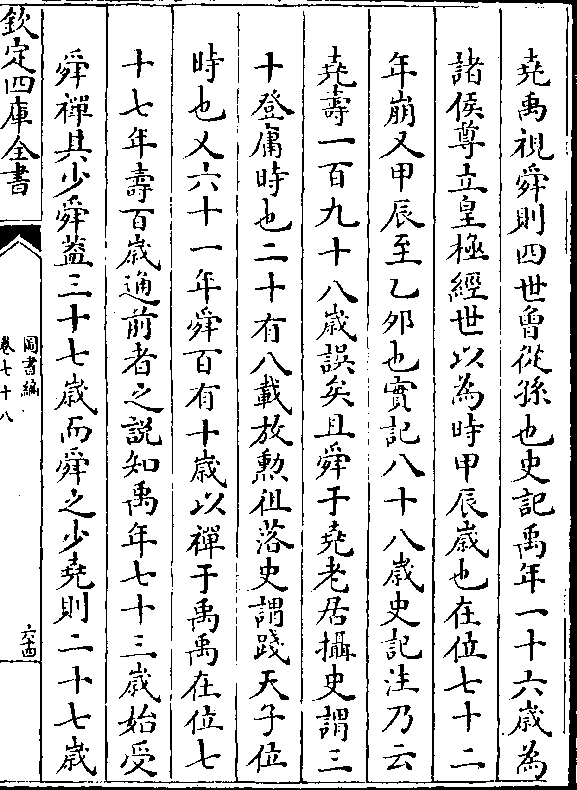 堯禹視舜則四世曾從孫也史記禹年一十六歲為
諸侯尊立皇極經世以為時甲辰歲也在位七十二
年崩又甲辰至乙夘也實記八十八歲史記注乃云
堯壽一百九十八歲誤矣且舜于堯老居攝史謂三
十登庸時也二十有八載放勲徂落史謂踐天子位
時也又六十一年舜百有十歲以禪于禹禹在位七
十七年壽百歲通前者之説知禹年七十三歲始受
舜禪其少舜蓋三十七歲而舜之少堯則二十七歲
欽定四庫全書
圖書編
卷七十八
六十四